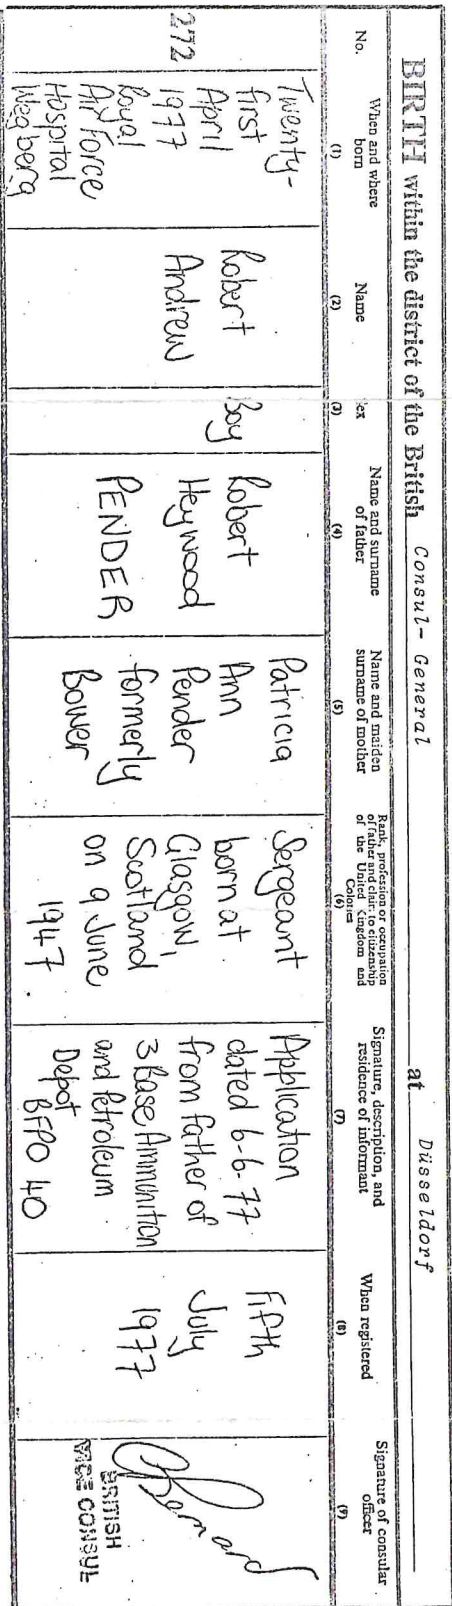 BIRTH within the district of the British Consul- General at Düsseldorf
No.
When and where
born
(1)
Name
(2)
ex
(3)
Name and surname
of father
(4)
Name and maiden
surname of mother
(5)
Rank, profession or occupation
of father and claim to citizenship
of the United Kingdom and
Colonies
(6)
Signature, description, and
residence of informant
(7)
When registered
(8)
Signature of consular
officer
(9)
272
Twenty-
first
April
1977
Royal
Air Force
Hospital
Wegberg
Robert
Andrew
Boy
Robert
Heywood
PENDER
Patricia
Ann
Pender
formerly
Bower
Sergeant
born at
Glasgow,
Scotland
on 9 June
1947.
Application
dated 6-6-77
from father of
3 Base Ammunition
and Petroleum
Depot
BFPO 40
Fifth
July
1977
BRITISH
VICE CONSUL